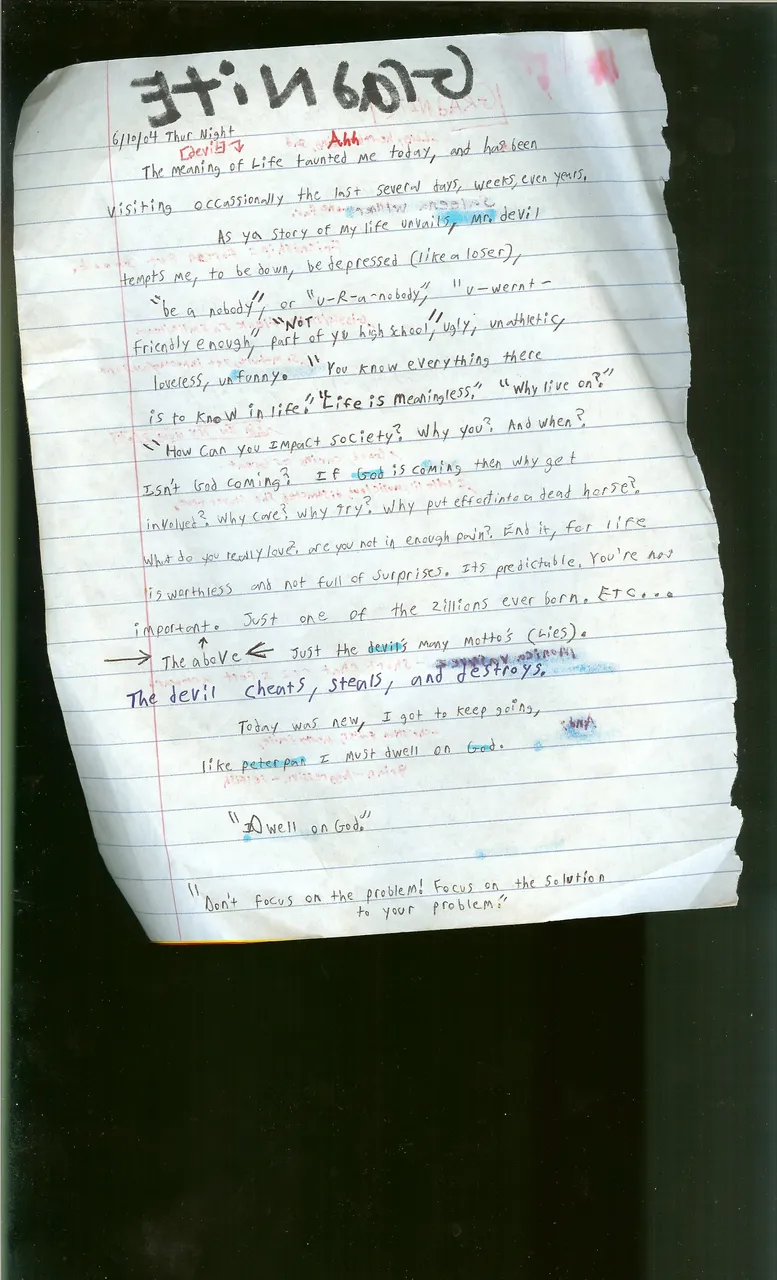 Grad NitE
6/10/04 Thur Night
[devil] Ahh
The meaning of Life taunted me today, and has been
visiting occassionally the last several days, weeks, even years.
As ya story of my life unvails, mr. devil
tempts me, to be down, be depressed (like a loser),
"be a nobody", or "u-R-a-nobody", "u-wernt-
friendly enough," "NOT part of yu high school," ugly, unathletic,
loveless, unfunny. "You know everything there
is to know in life." "Life is meaningless." "Why live on?"
"How can you Impact society? Why you? And when?
Isn't God coming? If God is coming then why get
involved? Why care? Why try? Why put effort into a dead horse?
What do you really love? are you not in enough pain? End it, for life
is worthless and not full of surprises. Its predictable. You're not
important. Just one of the zillions ever born. ETC...
→ The above ← Just the devil's many Motto's (Lies).
The devil cheats, steals, and destroys.
Today was new, I got to keep going,
And:
like peter pan I must dwell on God.
"Dwell on God."
"Don't focus on the problem! Focus on the Solution
to your problem!"